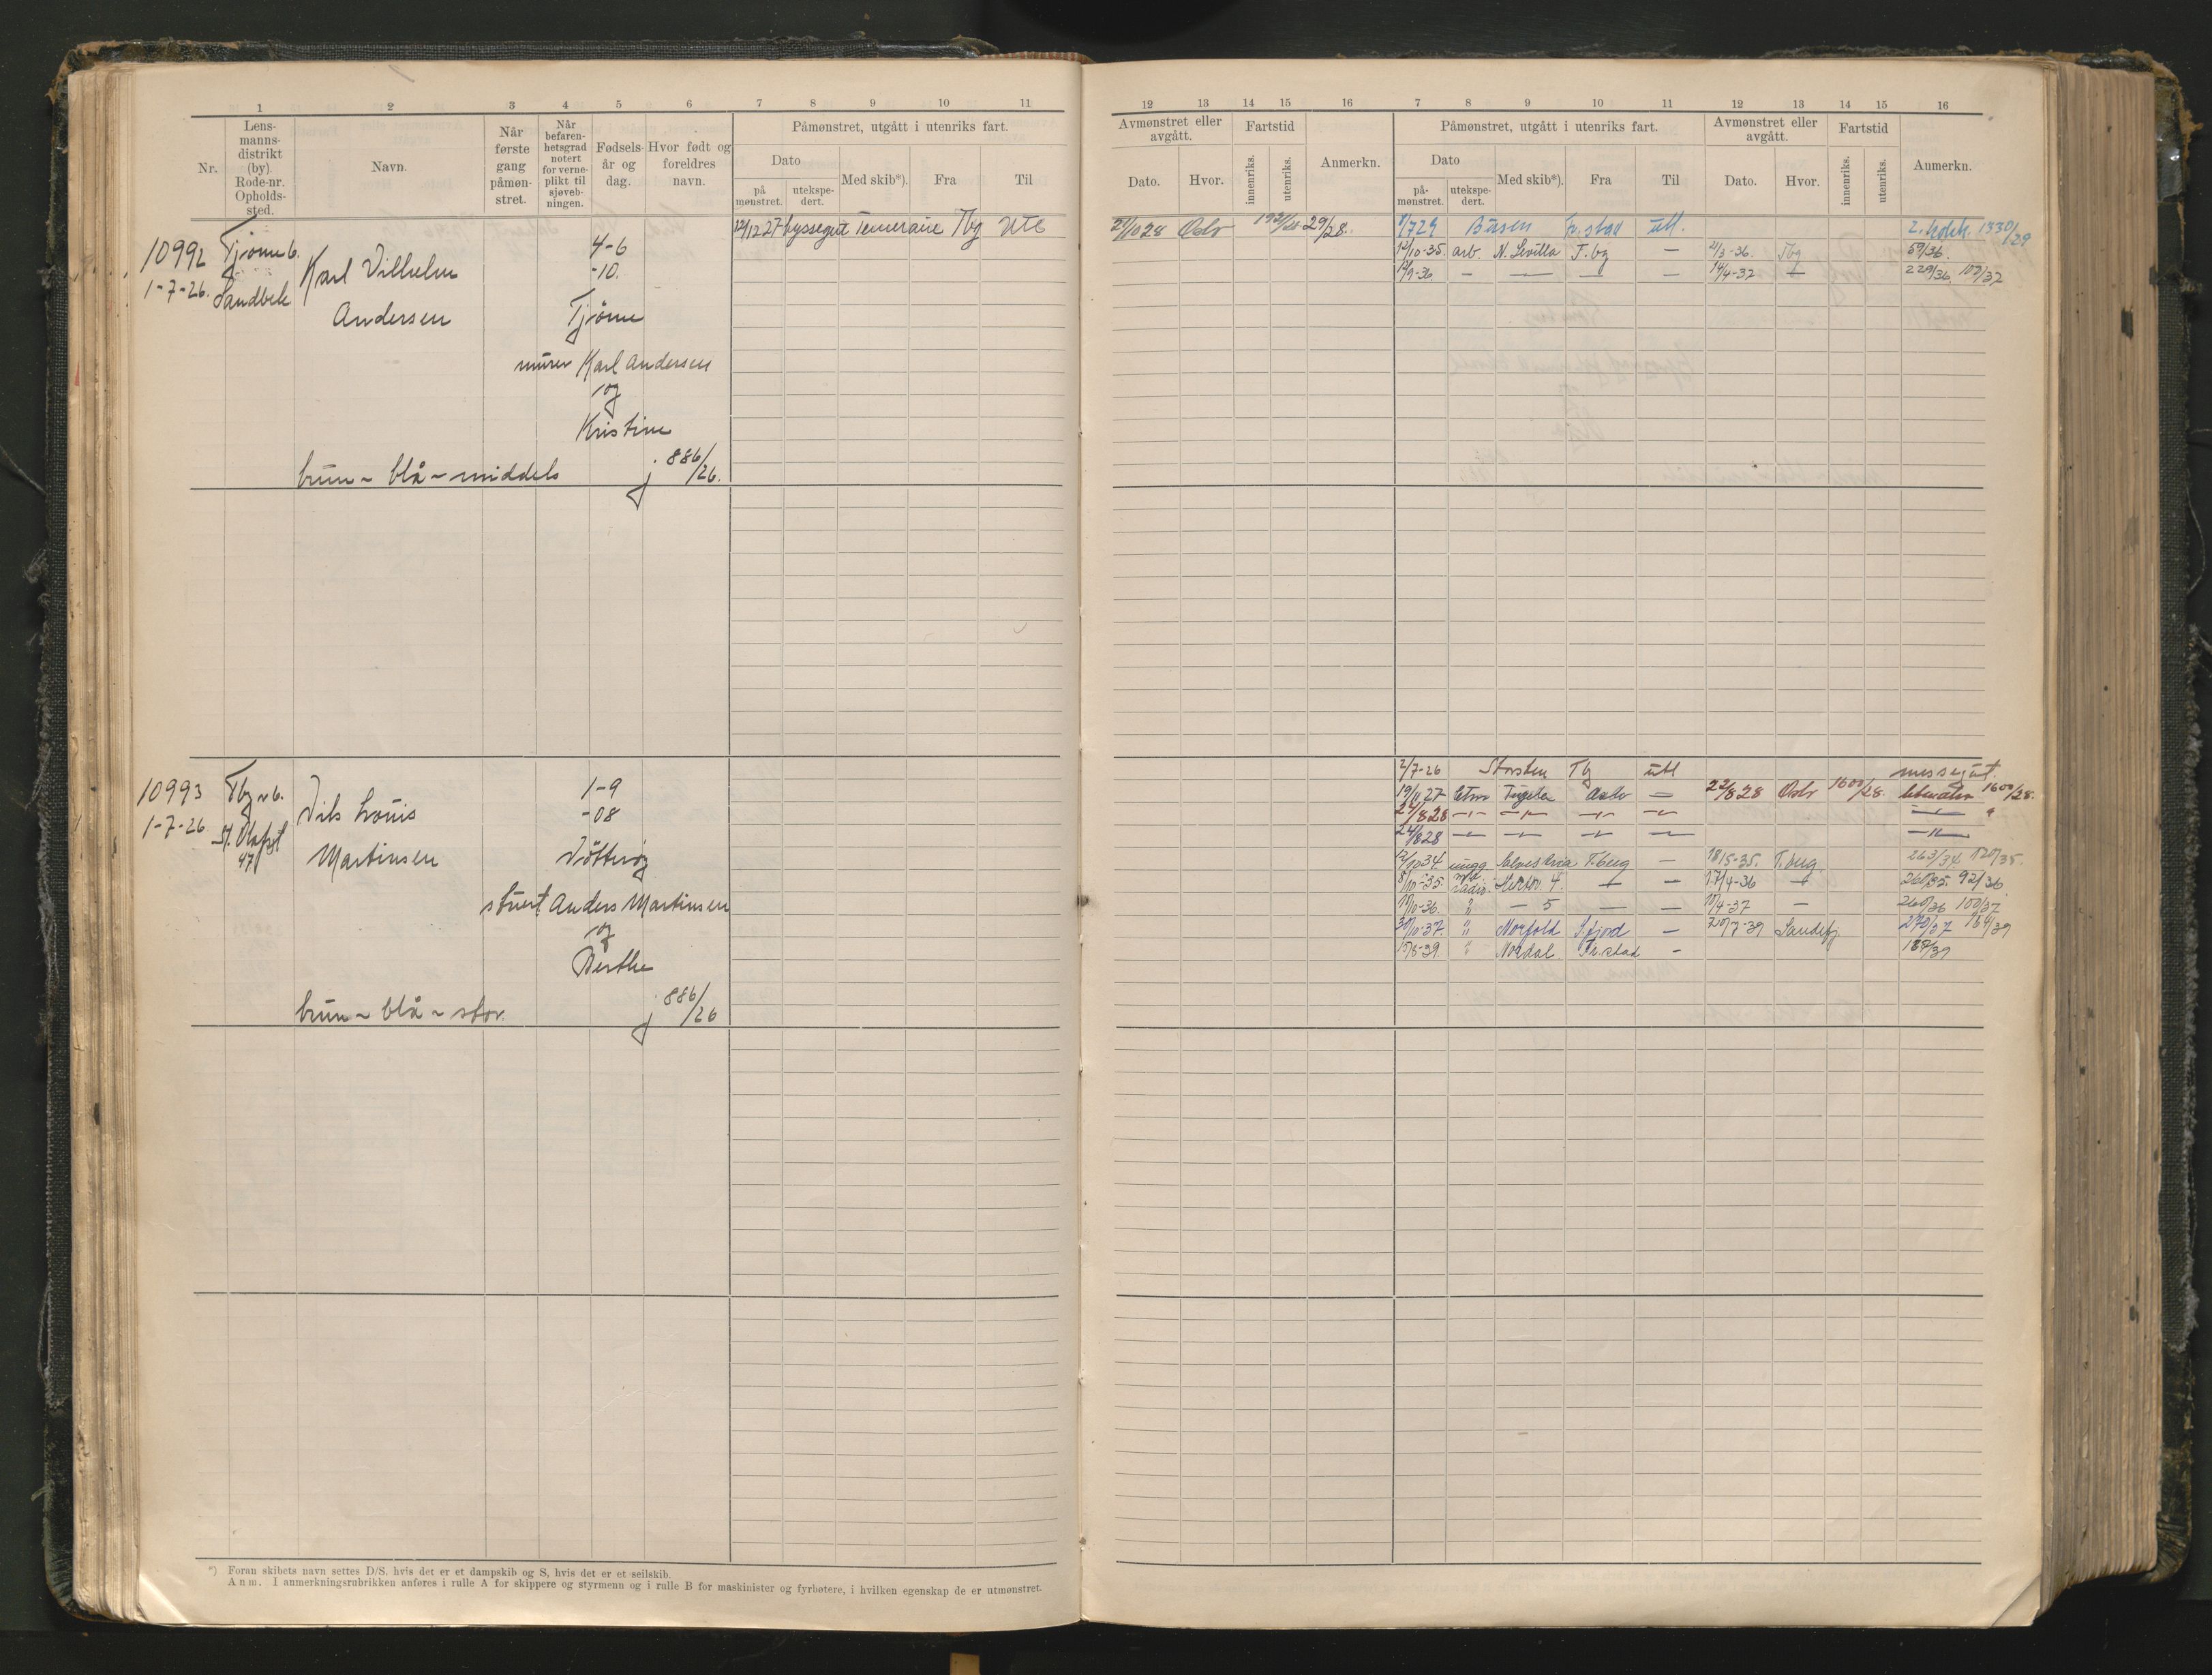 1 2 3 4 5 6 7 8 9 10 11
Nr. Lens-manns-distrikt (by). Rode-nr. Opholds-sted. Navn. Når første gang påmøn-stret. Når befaren-hetsgrad notert for verne-plikt til sjøveb-ningen. Fødsels-år og dag. Hvor født og foreldres navn. Påmønstret, utgått i utenriks fart.
Dato
på mønstret. utekspe-dert. Med skib*). Fra Til
10992 Tjøme 6. 4-6 12/12 27 byssegut Temeraire Tbg Utl
1-7-26. Sandbek Karl Vilhelm -10.
Andersen Tjøme
murer Karl Andersen
og
Kristine
brun - blå - middels j 886/26.
10993 Tbg 6. 1-9
1-7-26 St. Olafsgt 47 Nils Louis -08
Martinsen Nötterøy
stuert Anders Martinsen
og
Berthe
brun - blå - stor. j 886/26
*) Foran skibets navn settes D/S, hvis det er et dampskib og S, hvis det er et seilskib.
Anm. I anmerkningsrubrikken anføres i rulle A for skippere og styrmenn og i rulle B for maskinister og fyrbøtere, i hvilken egenskap de er utmønstret.
12 13 14 15 16 7 8 9 10 11 12 13 14 15 16
Avmønstret eller avgått. Fartstid Anmerkn. Påmønstret, utgått i utenriks fart. Avmønstret eller avgått. Fartstid Anmerkn.
Dato. Hvor. innenriks. utenriks. Dato på-mønstret. utekspe-dert. Med skib*). Fra Til Dato. Hvor. innenriks. utenriks.
21/10 28 Oslo 29/28. 8/7 29 Busen Fr.stad utl. 2. kokk. 1330/29
12/10-35. arb. N. Sevilla T.bg — 21/3-36. Tbg 59/36.
12/9-36. — — — — 14/4-37 —
2/7-26 Storsten Tg utl messegut.
19/11 27 Oslo — 22/8 28 Oslo 1600/28. 1600/28.
24/8 28 -"- -"- -"- -"-
24/8 28 -"- -"- -"- — -"-
12/10 34. T.berg — 18/5-35. T.berg 263/34 120/35.
8/10-35. radio. 4. — — 17/4-36 — 260/35. 92/36.
10/10-36. " — 5 — — 10/4-37 — 260/36 100/37
30/10-37. " Norfold S.fjord — 20/7-39 Sandefj. 270/37 184/39
15/8-39. " Nordal Fr.stad -